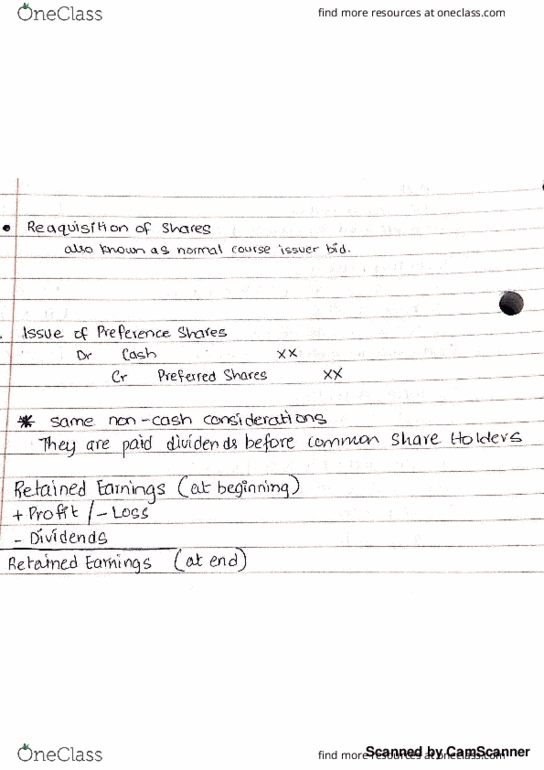 OneClass
find more resources at oneclass.com
Reaquisition of Shares
also known as normal course issuer bid.
Issue of Preference Shares
Dr Cash xx
Cr Preferred Shares xx
* same non-cash considerations
They are paid dividends before common share Holders
Retained Earnings (at beginning)
+ Profit / - Loss
- Dividends
Retained Earnings (at end)
OneClass
find more resources at oneclass.com
Scanned by CamScanner